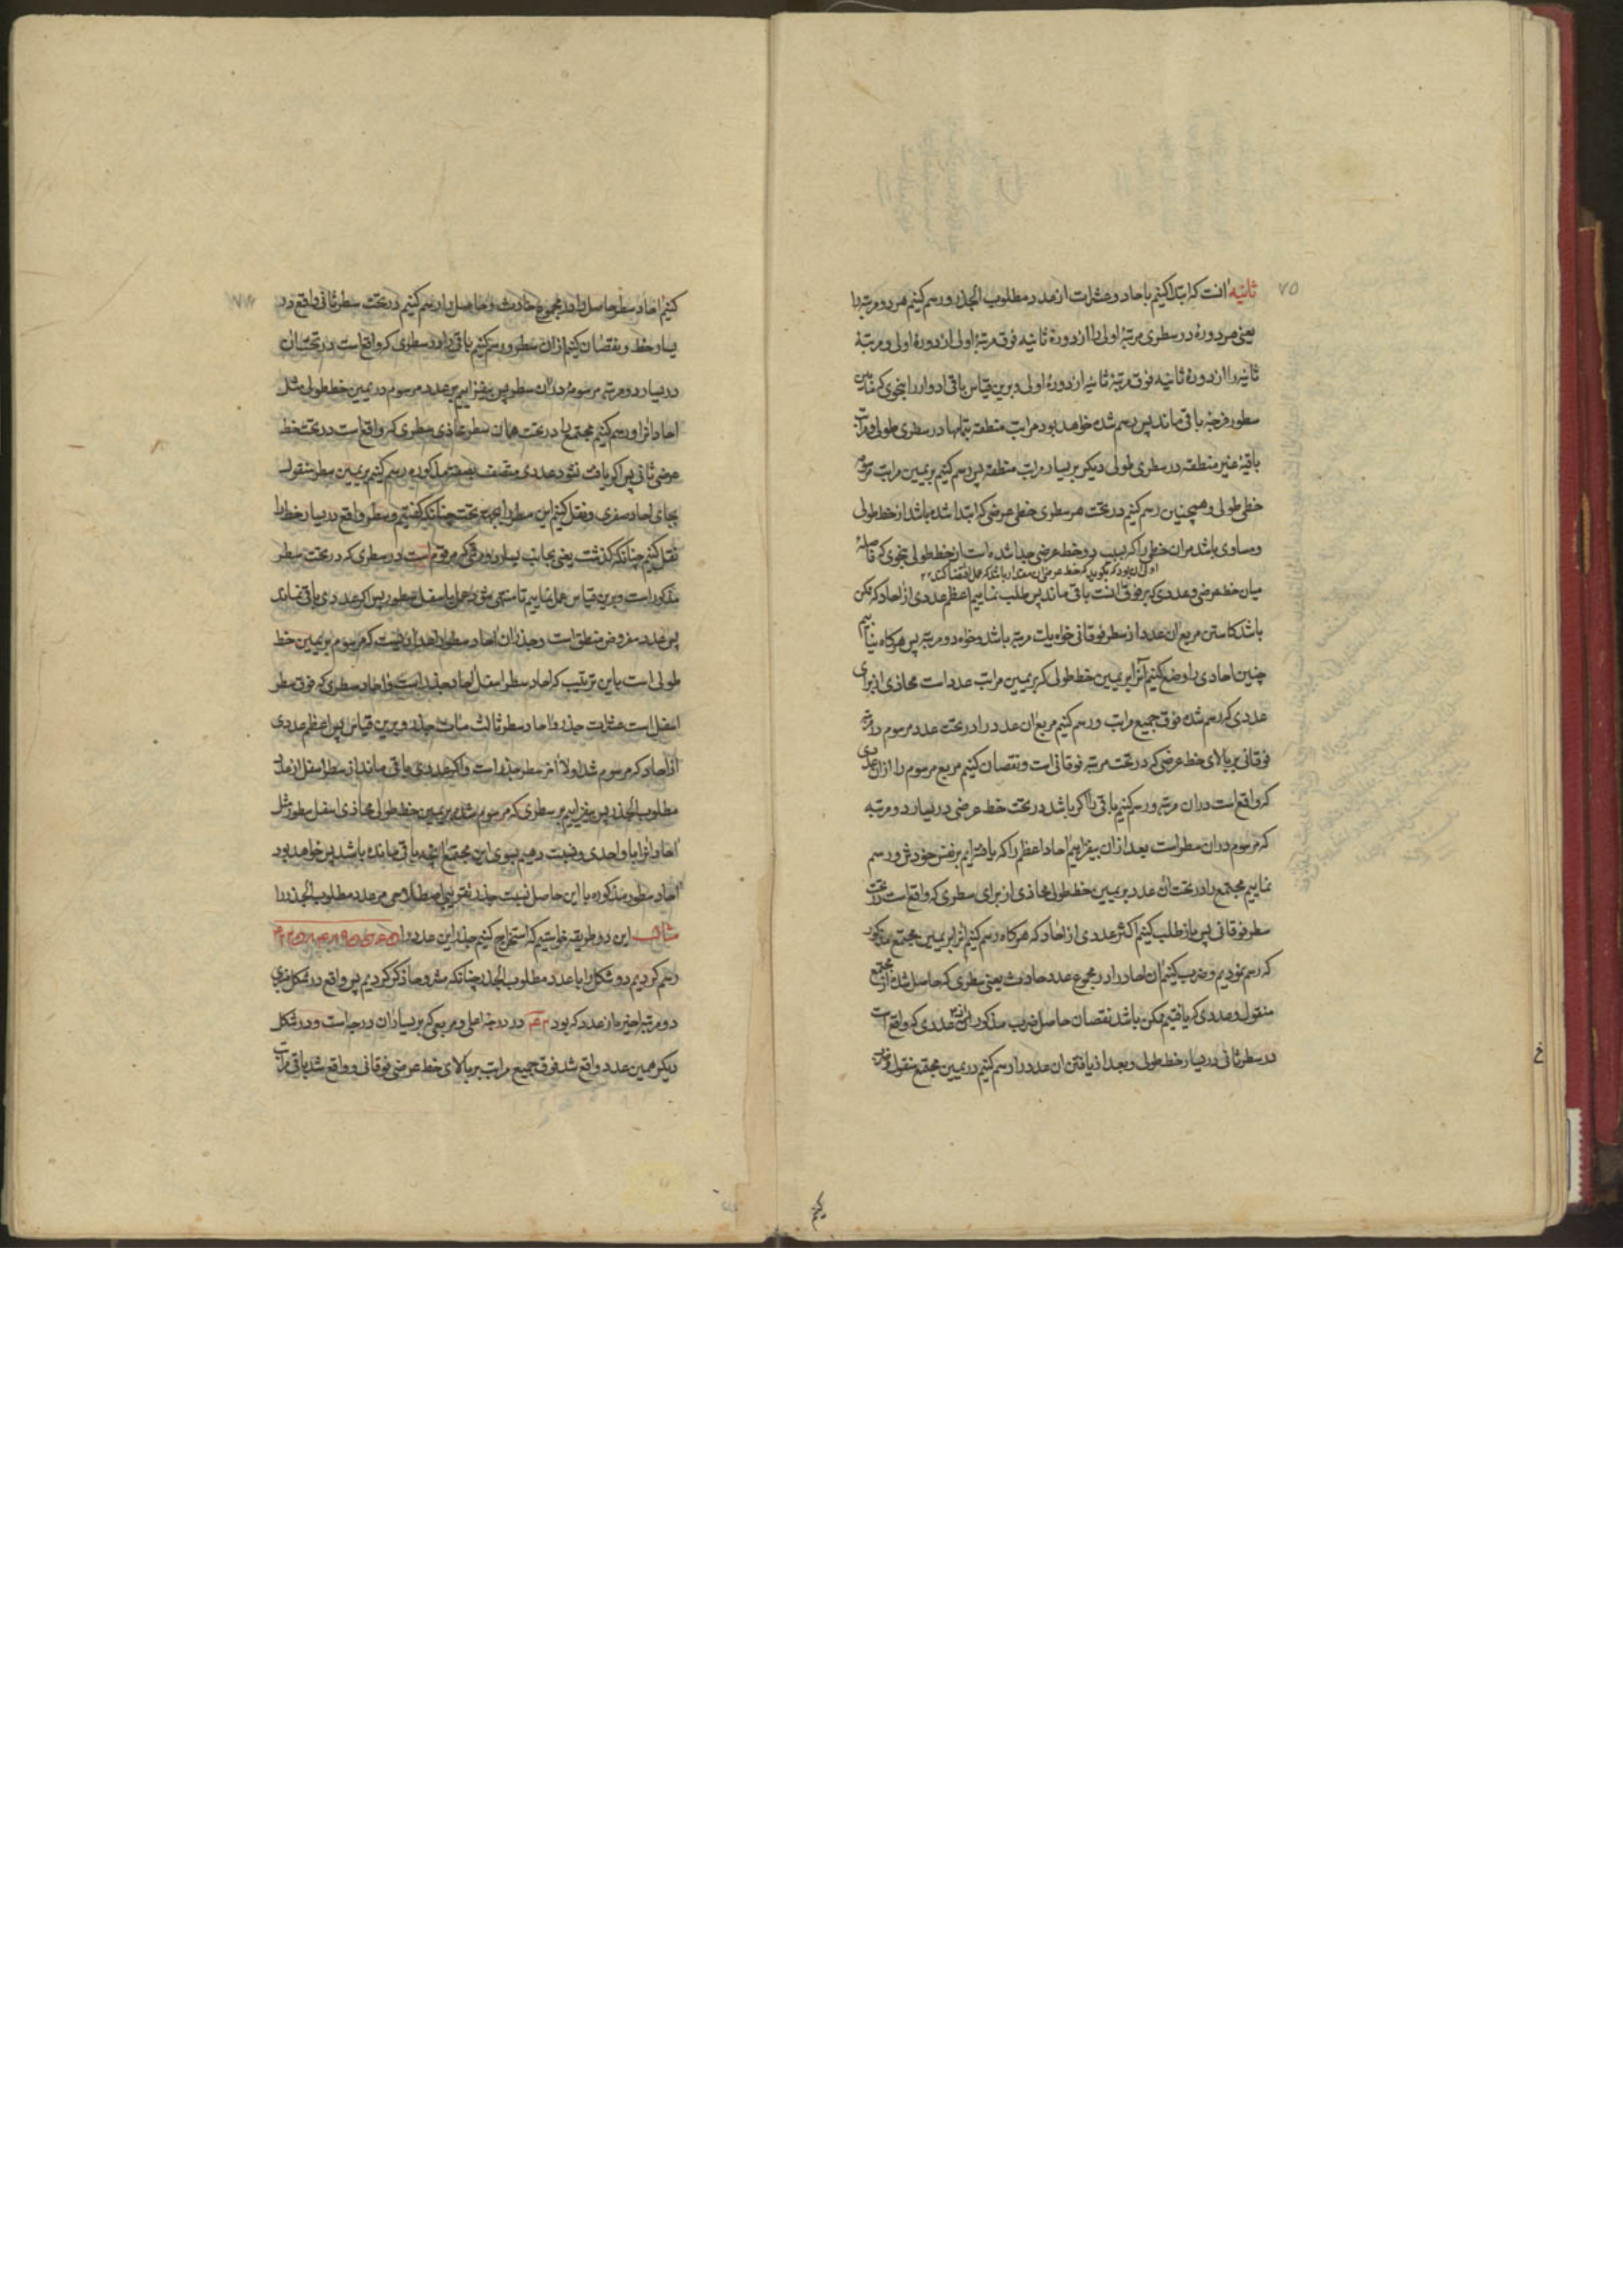 ۷۵
ثانیه انست که ابتدا کنیم باحاد و عشرات از عدد مطلوب الجذر و رسم کنیم هر دو مرتبه را
یعنی هر دوره در سطری مرتبهٔ اولی را از دورهٔ ثانیه فوق مرتبهٔ اولی از دورهٔ اولی و مرتبهٔ
ثانیه را از دورهٔ ثانیه فوق مرتبهٔ ثانیه از دورهٔ اولی و برین قیاس باقی ادوار را بنحوی که مابین
سطور فرجهٔ باقی ماند پس رسم شده خواهد بود مراتب منطقه بتمامها در سطری طولی و مراتب
باقیهٔ غیر منطقه در سطری طولی دیکر بر یسار مراتب منطقه پس رسم کنیم بر یمین مراتب مرسومه
خطی طولی و همچنین رسم کنیم در تحت هر سطری خطی عرضی که ابتدا شده باشد از خط طولی
و مساوی باشد مران خطی را که بسبب دو خط عرضی جدا شده است از خط طولی بنحوی که فاصلهٔ
میان خط عرضی و عددی که بر فوق انست باقی ماند پس طلب نماییم اعظم عددی از احاد که ممکن
باشد کاستن مربع ان عدد از سطر فوقانی خواه یک مرتبه باشد و خواه دو مرتبه پس هرکاه بیابیم
چنین احادی را وضع کنیم آنرا بر یمین خط طولی که بر یمین مراتب عدد است محاذی از برای
عددی که رسم شده فوق جمیع مراتب و رسم کنیم مربع ان عدد را در تحت عدد مرسوم در مرتبهٔ
فوقانی بر بالای خط عرضی که در تحت مرتبه فوقانی است و نقصان کنیم مربع مرسوم را از ان عددی
که واقع است دران مرتبه و رسم کنیم باقی را اکر باشد در تحت خط عرضی در یسار دو مرتبه
که مرسوم دران سطر است بعد ازان بیفزاییم احاد اعظم را که یافته‌ایم بر نفس خودش و رسم
نماییم مجتمع را در تحت ان عدد بر یمین خط طولی محاذی از برای سطری که واقع است در تحت
سطر فوقانی پس باز طلب کنیم اکثر عددی از احاد که هرکاه رسم کنیم انرا بر یمین مجتمع مذکور
که رسم نمودیم و ضرب کنیم ان احاد را در مجموع عدد حادث یعنی سطری که حاصل شده از مجتمع
منقول و عددی که یافتیم ممکن باشد نقصان حاصل ضرب مذکور از عددی که واقع است
در سطر ثانی در یسار خط طولی و بعد از یافتن ان عدد را رسم کنیم در یمین مجتمع منقول و ضرب
کنیم
کنیم احاد سطر حاصل را در مجموع حادث و حاصل را رسم کنیم در تحت سطر ثانی واقع در
یسار خط و نقصان کنیم ازان سطر و رسم کنیم باقی را در سطری که واقع است در تحت ان
در یسار دو مرتبه مرسومهٔ دران سطر پس بیفزاییم بر عدد مرسوم در یمین خط طولی مثل
احاد انرا و رسم کنیم مجتمع را در تحت همان سطر محاذی سطری که واقع است در تحت خط
عرضی ثانی پس اکر یافت نشود عددی متصف بصفت مذکوره رسم کنیم بر یمین سطر منقول
بجای احاد صفری و نقل کنیم این سطر را بجهت تحت چنانکه کفتیم و سطر واقع در یسار خط را
نقل کنیم چنانکه کذشت یعنی بجانب یسار دو رقمی که مرقوم است در سطری که در تحت سطر
مذکور است و برین قیاس عمل نماییم تا منتهی شود عمل باسفل سطور پس اکر عددی باقی نماند
پس عدد مفروض منطق است و جذر ان احاد سطور اعدادیست که مرسوم بر یمین خط
طولی است باین ترتیب که احاد سطر اسفل احاد جذر است و احاد سطری که فوق سطر
اسفل است عشرات جذر و احاد سطر ثالث مئات جذر و برین قیاس پس اعظم عددی
از احاد که مرسوم شد اولا اخر سطر جذر است و اکر عددی باقی ماند از سطر اسفل از عدد
مطلوب الجذر پس بیفزاییم بر سطری که مرسوم شد بر یمین خط طولی محاذی اسفل سطور مثل
احاد انرا با واحدی و نسبت دهیم بسوی این مجتمع انچه باقی مانده باشد پس خواهد بود
احاد سطور مذکوره با این حاصل نسبت جذر تقریبی اصطلاحی مر عدد مطلوب الجذر را
مثال این دو طریقه خواستیم که استخراج کنیم جذر این عدد را
رسم کردیم دو شکل را با عدد مطلوب الجذر چنانکه مشروحا ذکر کردیم پس واقع در شکل
دو مرتبه اخیره از عدد که بود در درجه اعلی و مربعی که بر یسار ان درجه است و در شکل
دیکر همین عدد واقع شد فوق جمیع مراتب بر بالای خط عرضی فوقانی و واقع شد باقی مراتب